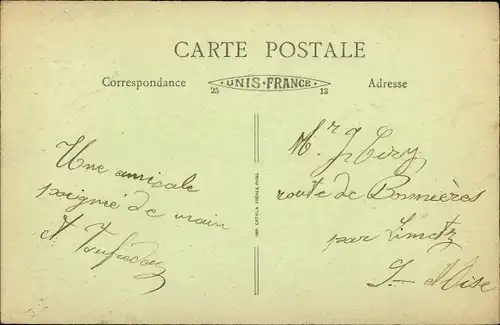 CARTE POSTALE
Correspondance
UNIS-FRANCE
25 13
Adresse
Une amicale
poignée de main
Mr
route de Bonnières
par Limetz
S- d'Oise